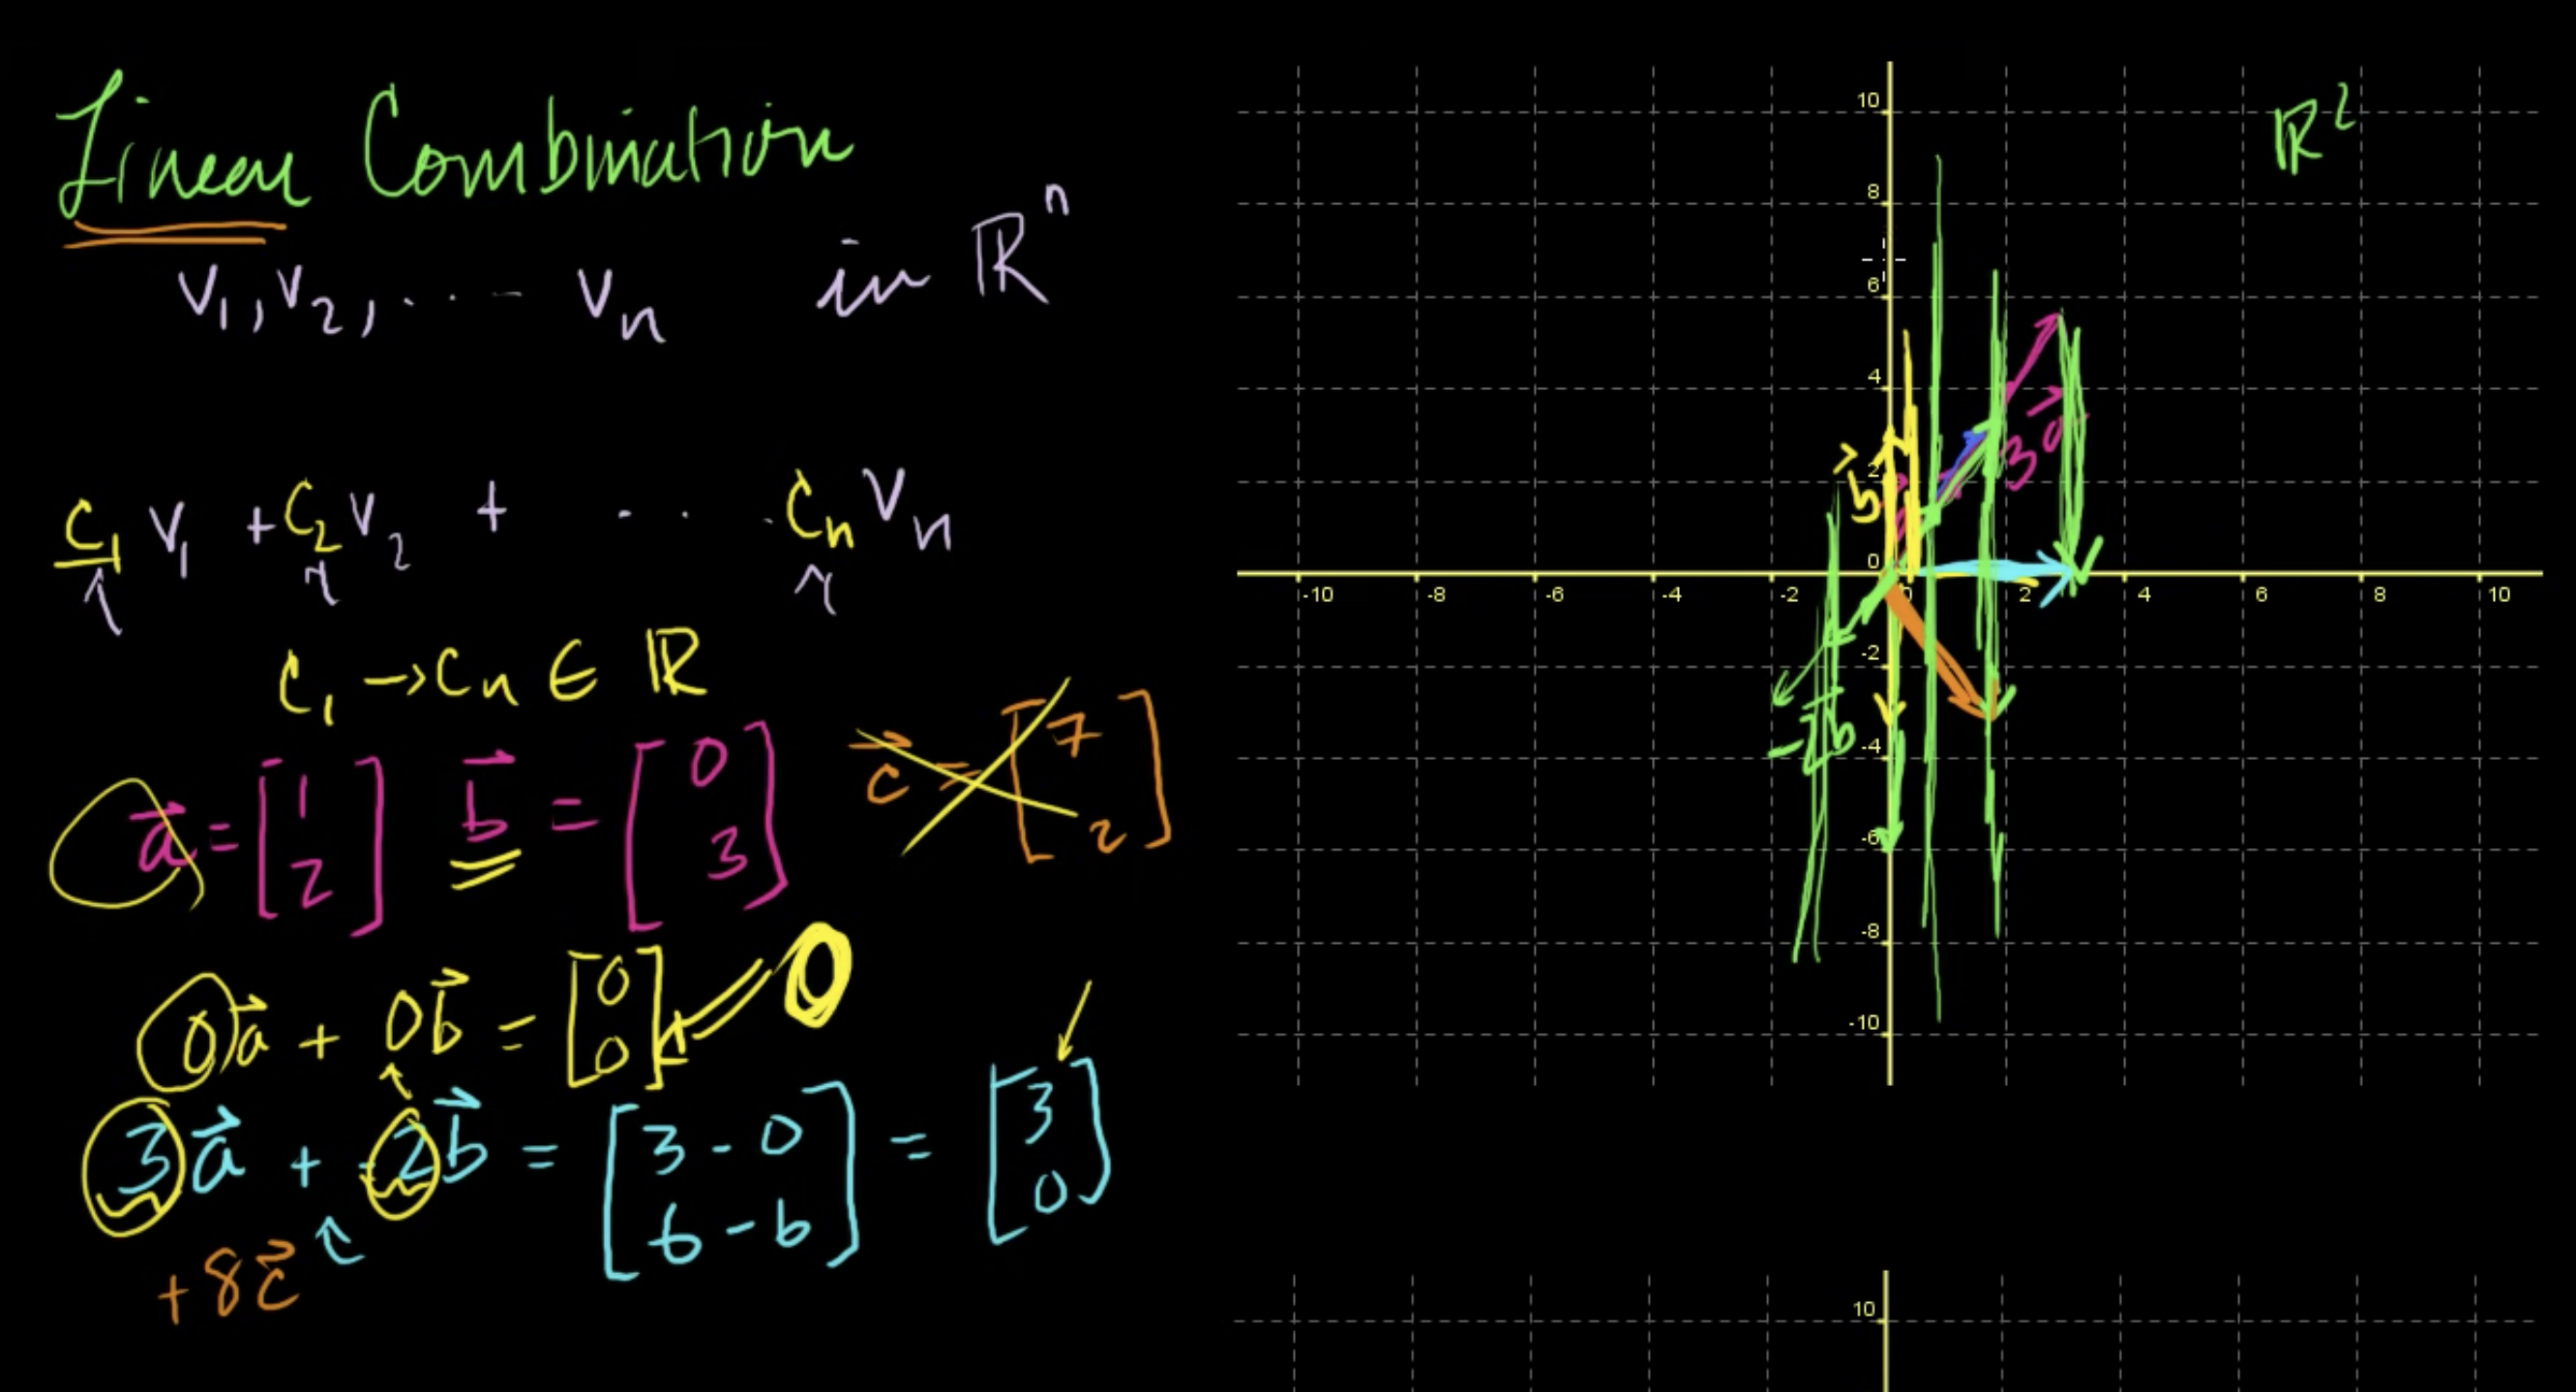 Linear Combination
v₁, v₂, ... vₙ in ℝⁿ
c₁v₁ + c₂v₂ + ... cₙvₙ
c₁ → cₙ ∈ ℝ
a⃗ = [1 2] b⃗ = [0 3] c⃗ = [7 2]
0a⃗ + 0b⃗ = [0 0] ← 0
3a⃗ + -2b⃗ = [3 - 0 6 - 6] = [3 0]
+8c⃗
ℝ²
10
8
6
4
2
0
-2
-4
-6
-8
-10
-10 -8 -6 -4 -2 0 2 4 6 8 10
b⃗
3a⃗
-2b
10